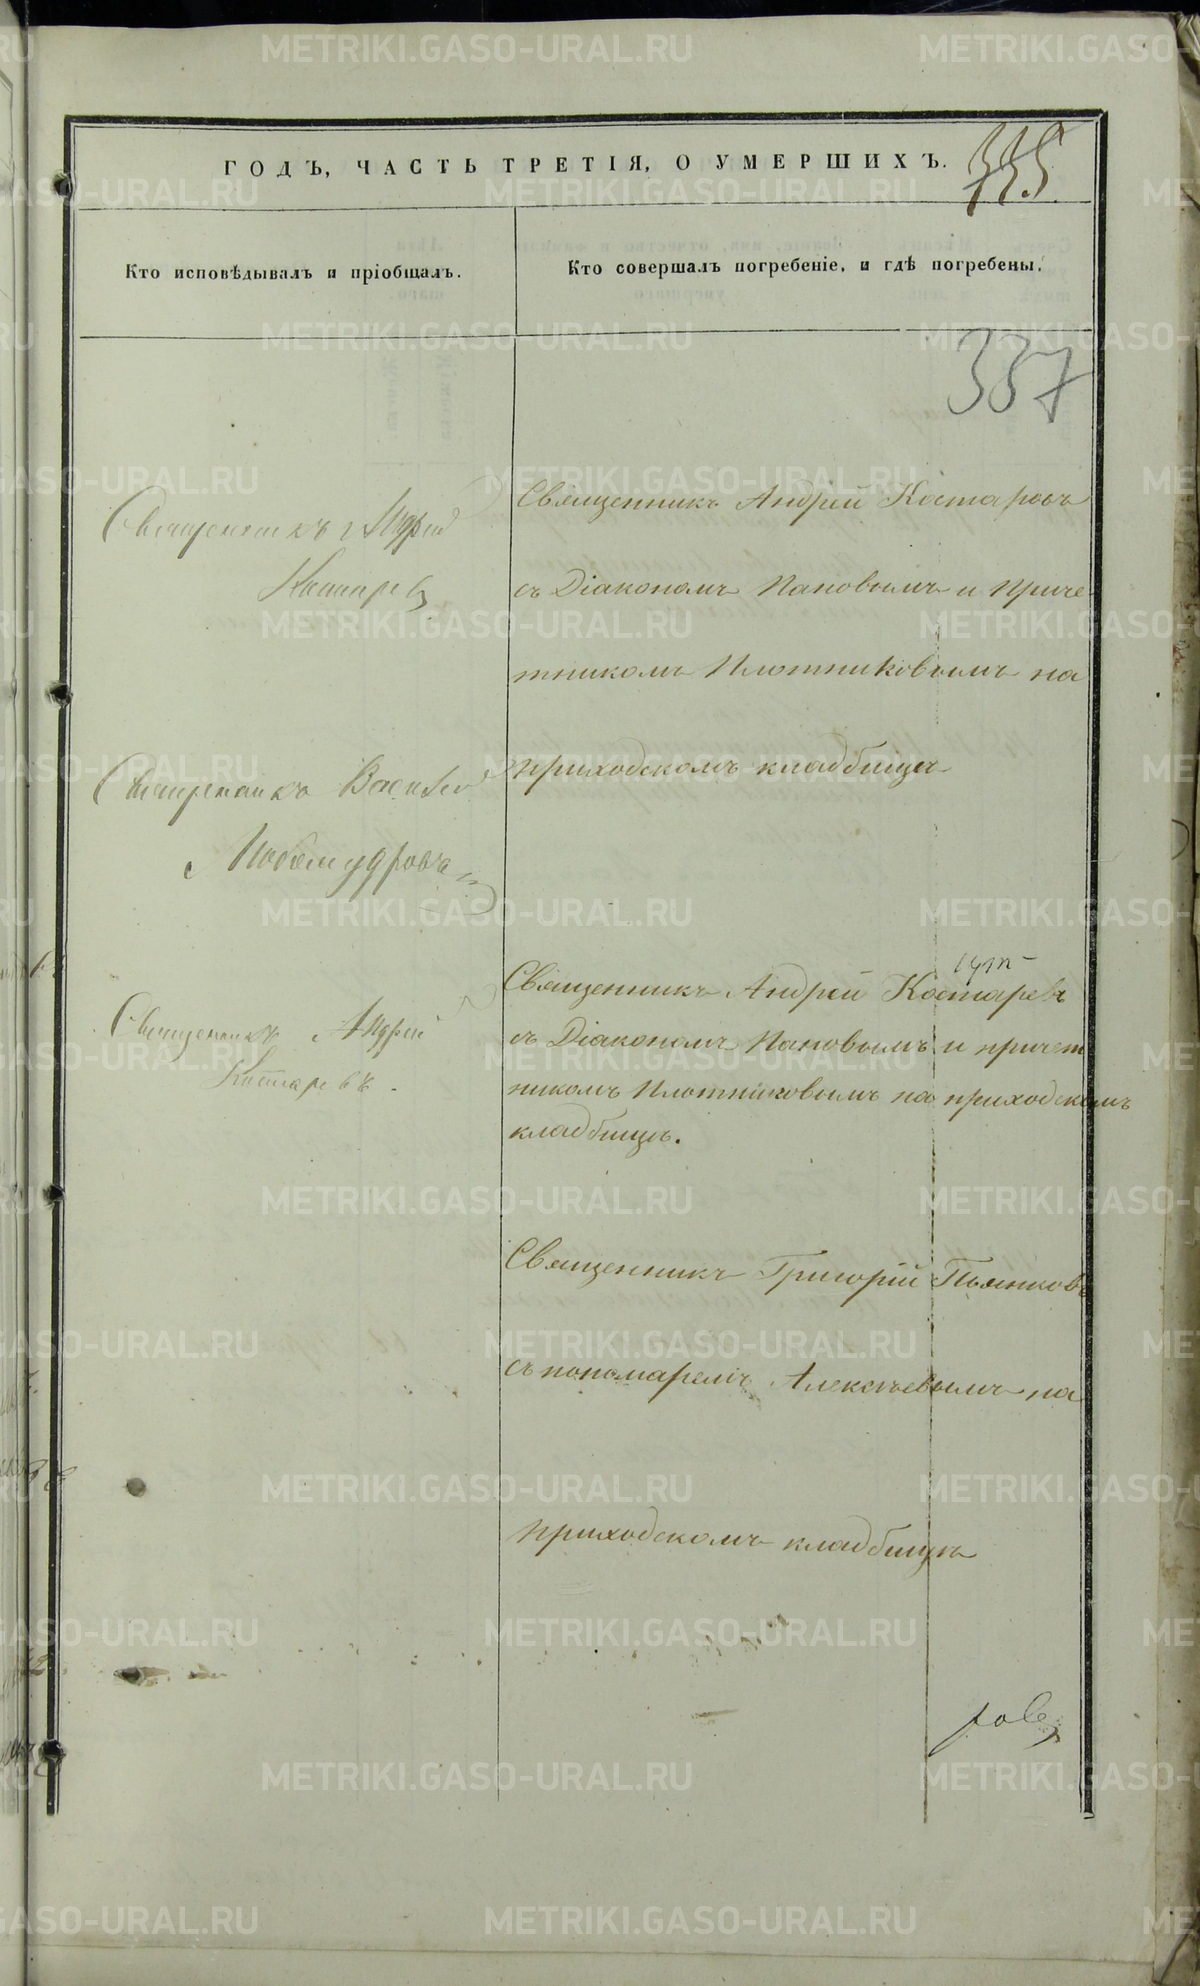 ГОДЪ, ЧАСТЬ ТРЕТІЯ, О УМЕРШИХЪ.
335
Кто исповѣдывалъ и пріобщалъ.
Кто совершалъ погребеніе, и гдѣ погребены.
337
Священникъ Андрей
Костаревъ
Священникъ Андрей Костаревъ
съ Діакономъ Пановымъ и Приче
тникомъ Плотниковымъ на
приходскомъ кладбищѣ
Священникъ Василій
Любомудровъ
Священникъ Андрей
Костаревъ.
Священникъ Андрей Костаревъ
съ Діакономъ Пановымъ и причет
никомъ Плотниковымъ на приходскомъ
кладбищѣ.
Священникъ Григорій Пьянковъ
съ пономаремъ Алексѣевымъ на
приходскомъ кладбищѣ
METRIKI.GASO-URAL.RU